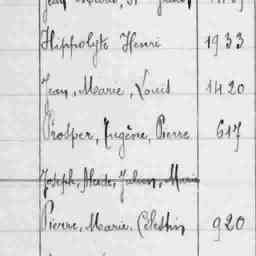 Hippolyte Henri 1933
Jean, Marie, Louis 1420
Prosper, Eugène, Pierre 617
Joseph, Julien, Marie
Pierre, Marie, Célestin 920